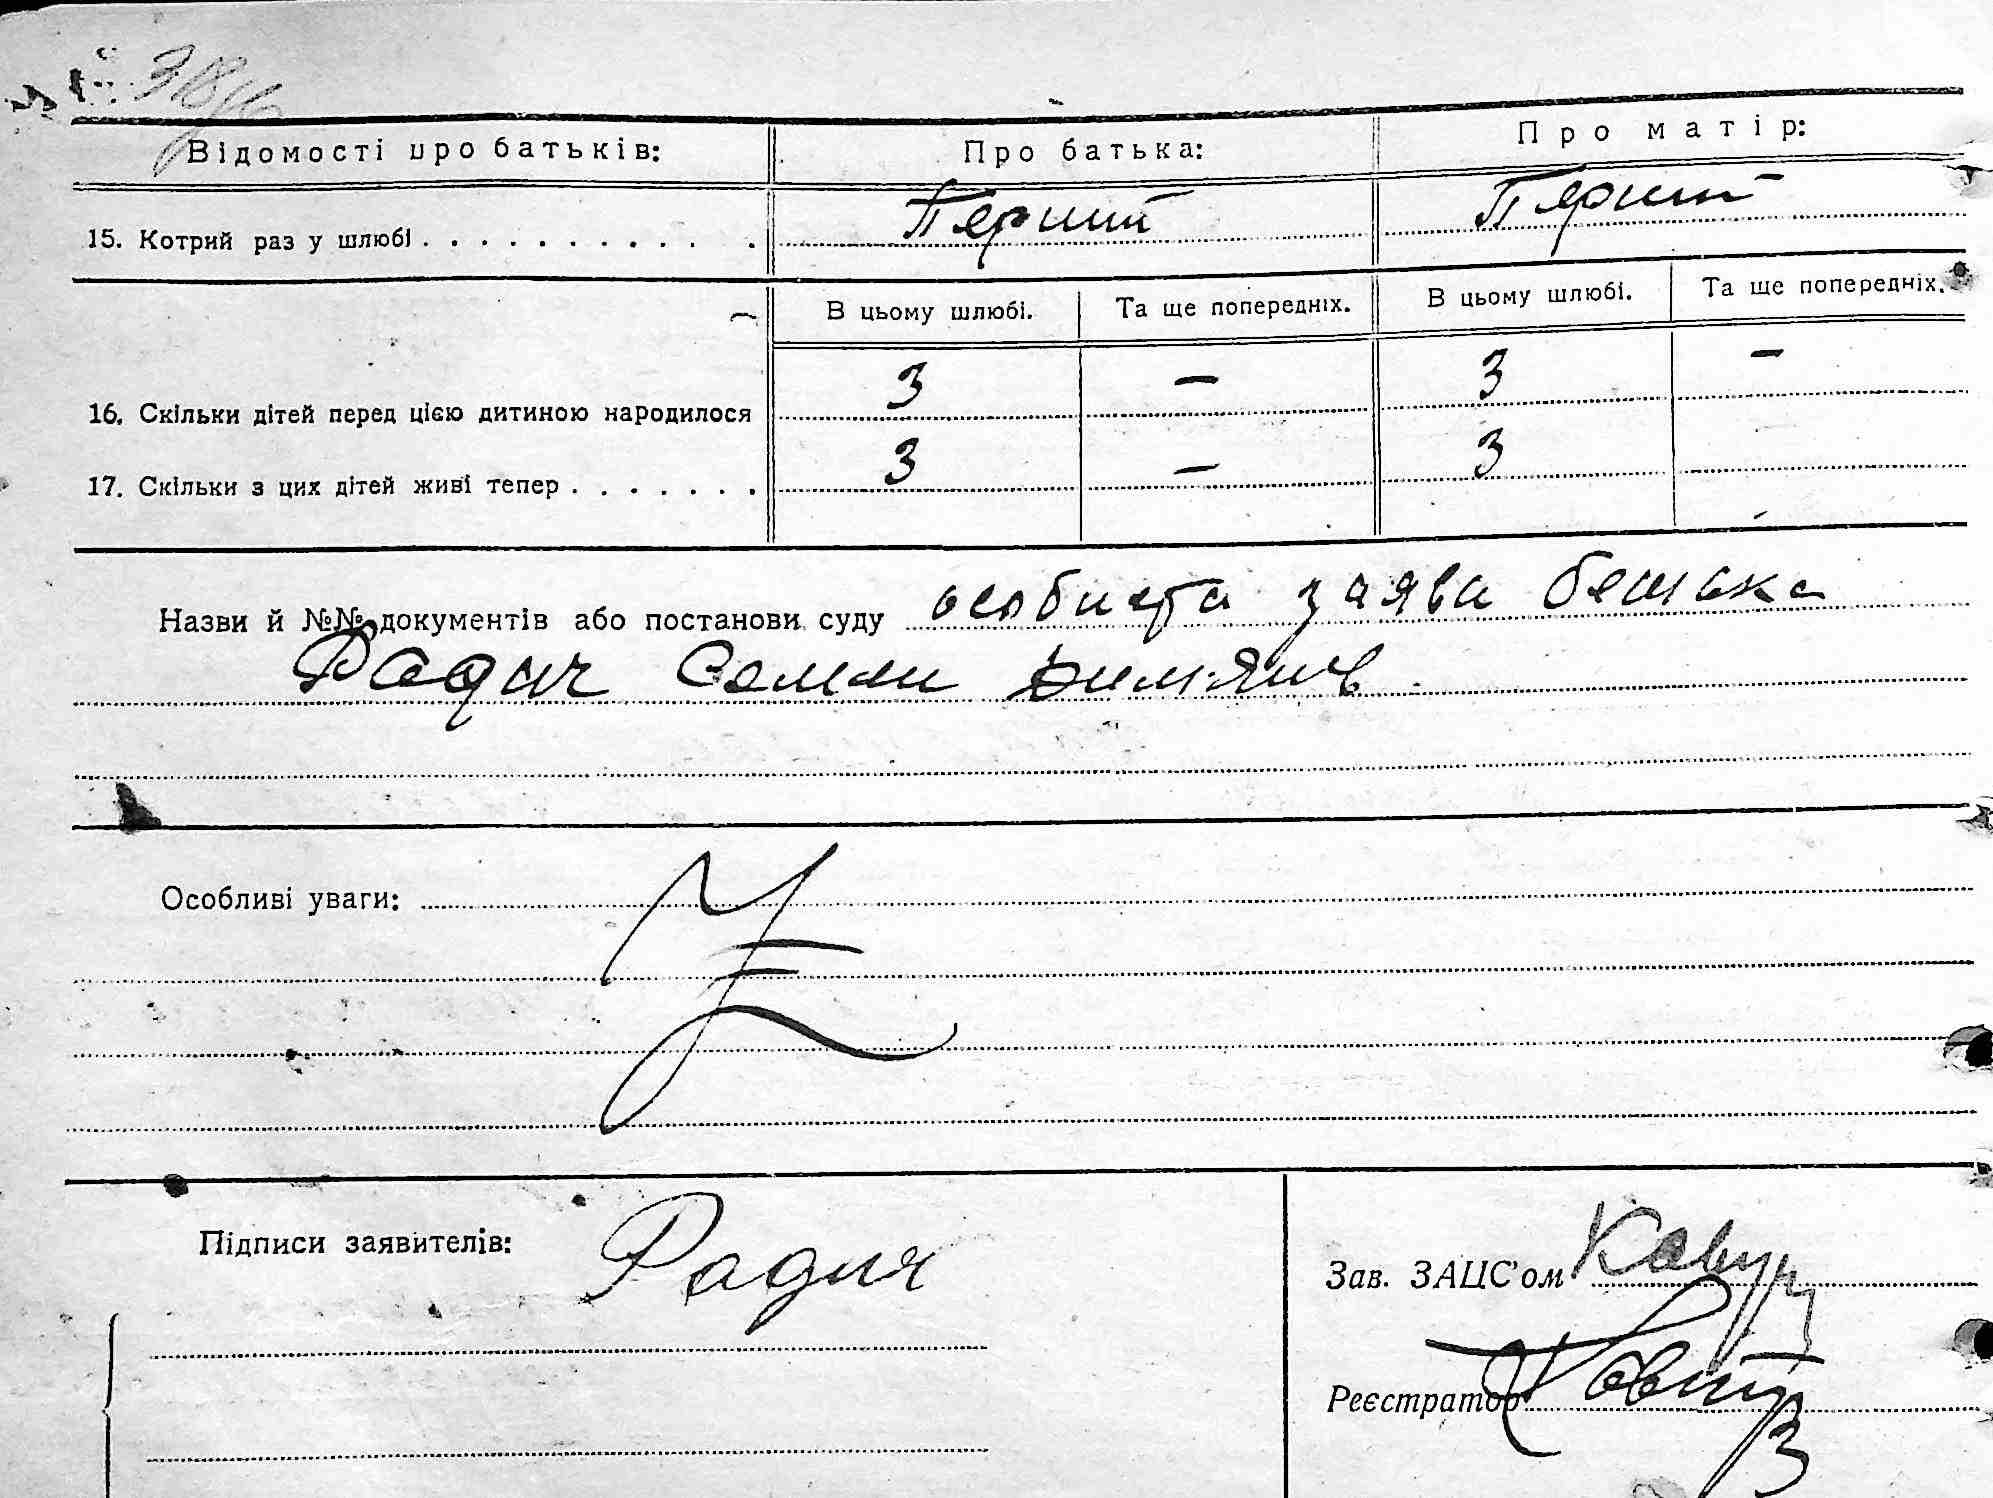 Відомості про батьків: Про батька: Про матір:
15. Котрий раз у шлюбі . . . . . . . . . . . . Перший Перший
В цьому шлюбі. Та ще попередніх. В цьому шлюбі. Та ще попередніх.
16. Скільки дітей перед цією дитиною народилося 3 — 3 —
17. Скільки з цих дітей живі тепер . . . . . . . 3 — 3
Назви й №№ документів або постанови суду особиста заява батька
Радич Семен
Особливі уваги:
Підписи заявителів: Радич
Зав. ЗАЦС'ом
Реєстратор